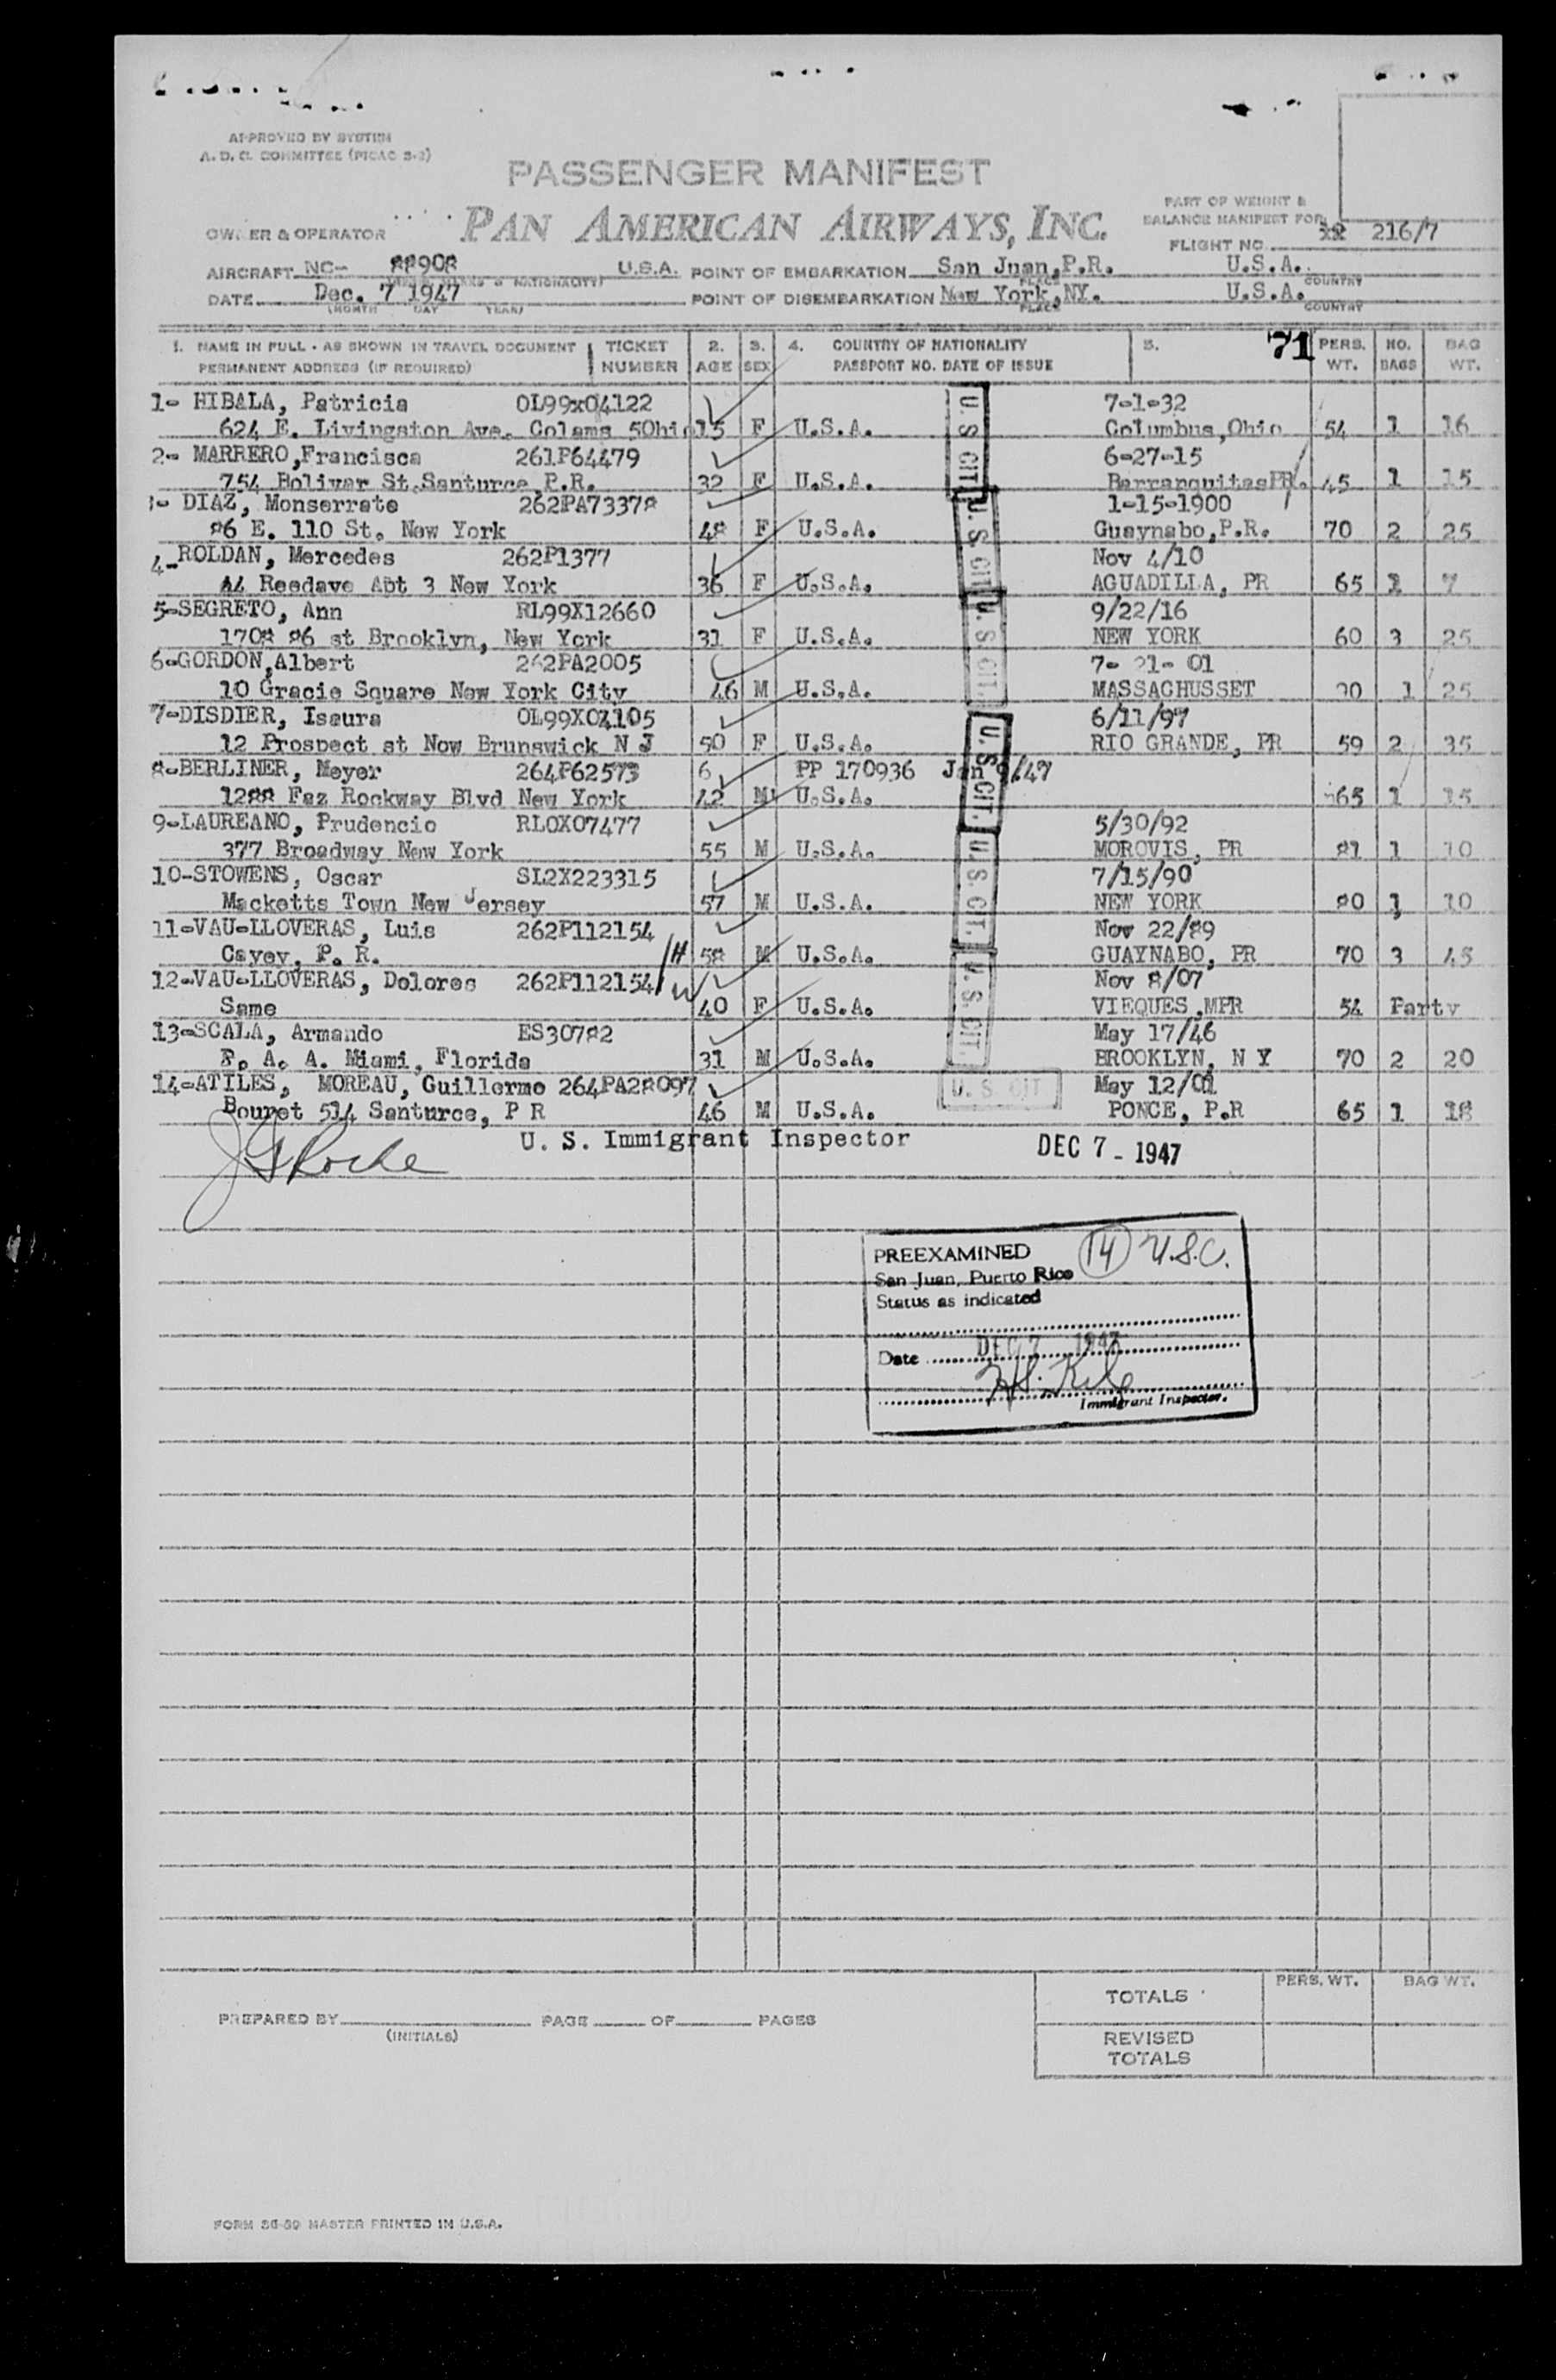 APPROVED BY SYSTEM
A. D. C. COMMITTEE (PICAO S-2)
PASSENGER MANIFEST
PART OF WEIGHT &
BALANCE MANIFEST FOR
OWNER & OPERATOR PAN AMERICAN AIRWAYS, INC.
FLIGHT NO. 216/7
AIRCRAFT NC- 88908 U.S.A. POINT OF EMBARKATION San Juan,P.R. U.S.A.
PLACE COUNTRY
DATE Dec. 7 1947 POINT OF DISEMBARKATION New York,NY. U.S.A.
(MONTH DAY YEAR) PLACE COUNTRY
1. NAME IN FULL - AS SHOWN IN TRAVEL DOCUMENT TICKET 2. 3. 4. COUNTRY OF NATIONALITY 5. 71 PERS. NO. BAG
PERMANENT ADDRESS (IF REQUIRED) NUMBER AGE SEX PASSPORT NO. DATE OF ISSUE WT. BAGS WT.
1- HIBALA, Patricia OL99x04122 7-1-32
624 E. Livingston Ave. Colams 5Ohio 15 F U.S.A. Columbus,Ohio 54 1 16
2- MARRERO,Francisca 261P64479 6-27-15
754 Bolivar St.Santurce P.R. 32 F U.S.A. BarranquitasPR. 45 1 15
3- DIAZ, Monserrate 262PA73378 1-15-1900
86 E. 110 St. New York 48 F U.S.A. Guaynabo,P.R. 70 2 25
4-ROLDAN, Mercedes 262P1377 Nov 4/10
44 Reedave Apt 3 New York 36 F U.S.A. AGUADILLA, PR 65 1 7
5-SEGRETO, Ann RL99X12660 9/22/16
1708 86 st Brooklyn, New York 31 F U.S.A. NEW YORK 60 3 25
6-GORDON,Albert 262PA2005 7- 21- 01
10 Gracie Square New York City 46 M U.S.A. MASSACHUSSET 1 25
7-DISDIER, Isaura OL99X04105 6/11/97
12 Prospect st New Brunswick N J 50 F U.S.A. RIO GRANDE, PR 59 2 35
8-BERLINER, Meyer 264P62573 6 PP 170936 Jan 9/47
1288 Faz Rockway Blvd New York 42 M U.S.A. 65 1 15
9-LAUREANO, Prudencio RLOX07477 5/30/92
377 Broadway New York 55 M U.S.A. MOROVIS, PR 81 1 10
10-STOWENS, Oscar SL2X223315 7/15/90
Macketts Town New Jersey 57 M U.S.A. NEW YORK 80 1 10
11-VAU-LLOVERAS, Luis 262P112154 Nov 22/89
Cayey, P. R. H 58 M U.S.A. GUAYNABO, PR 70 3 45
12-VAU-LLOVERAS, Dolores 262P112154 W Nov 8/07
Same 40 F U.S.A. VIEQUES,MPR 54 Party
13-SCALA, Armando ES30782 May 17/46
P. A. A. Miami, Florida 31 M U.S.A. BROOKLYN, N Y 70 2 20
14-ATILES, MOREAU, Guillermo 264PA28097 May 12/01
Bouret 514 Santurce, P R 46 M U.S.A. PONCE, P.R 65 1 18
U. S. CIT.
U. S. CIT.
U. S. CIT.
U. S. CIT.
U. S. CIT.
U. S. CIT.
U. S. CIT
U. S. Immigrant Inspector DEC 7 - 1947
PREEXAMINED 14 U.S.C.
San Juan, Puerto Rico
Status as indicated
Date DEC 7 1947
Immigrant Inspector.
TOTALS PERS. WT. BAG WT.
PREPARED BY PAGE OF PAGES
(INITIALS)
REVISED
TOTALS
FORM 36-39 MASTER PRINTED IN U.S.A.